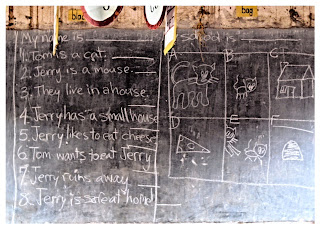 bag
My name is
School is
1. Tom is a cat.
2. Jerry is a mouse.
3. They live in a house.
4. Jerry has a small house
5. Jerry likes to eat cheese
6. Tom wants to eat Jerry
7. Jerry runs away
8. Jerry is safe at home
A B C
D E F